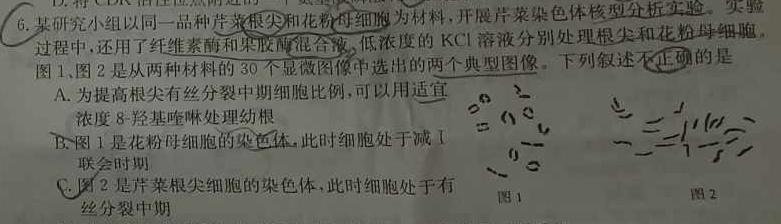 6. 某研究小组以同一品种芹菜根尖和花粉母细胞为材料,开展芹菜染色体核型分析实验。实验
过程中,还用了纤维素酶和果胶酶混合液、低浓度的 KCl 溶液分别处理根尖和花粉母细胞。
图 1、图 2 是从两种材料的 30 个显微图像中选出的两个典型图像。下列叙述不正确的是
A. 为提高根尖有丝分裂中期细胞比例,可以用适宜
浓度 8-羟基喹啉处理幼根
B. 图 1 是花粉母细胞的染色体,此时细胞处于减 I
联会时期
C. 图 2 是芹菜根尖细胞的染色体,此时细胞处于有
丝分裂中期
图 1
图 2